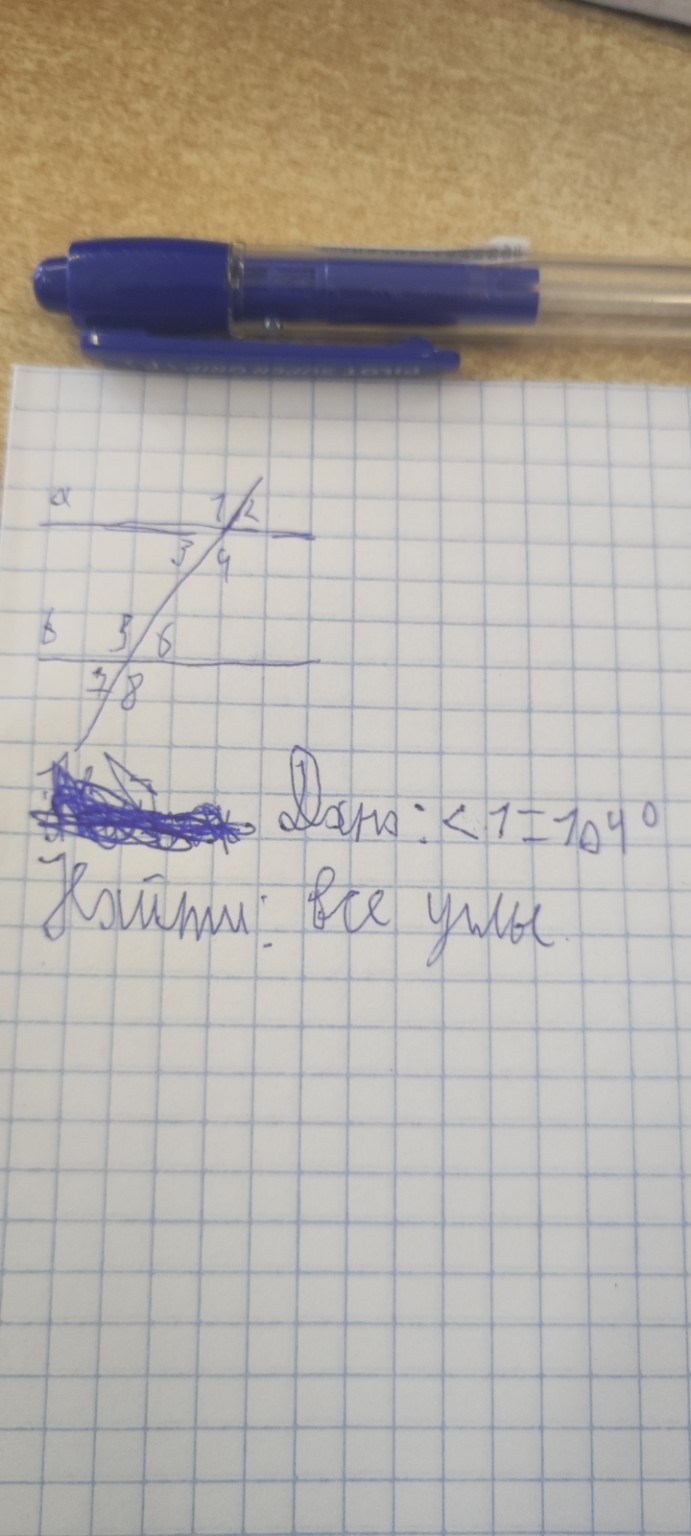 a 1 2
3 4
b 5 6
7 8
Дано: < 1 = 104°
Найти: все углы.